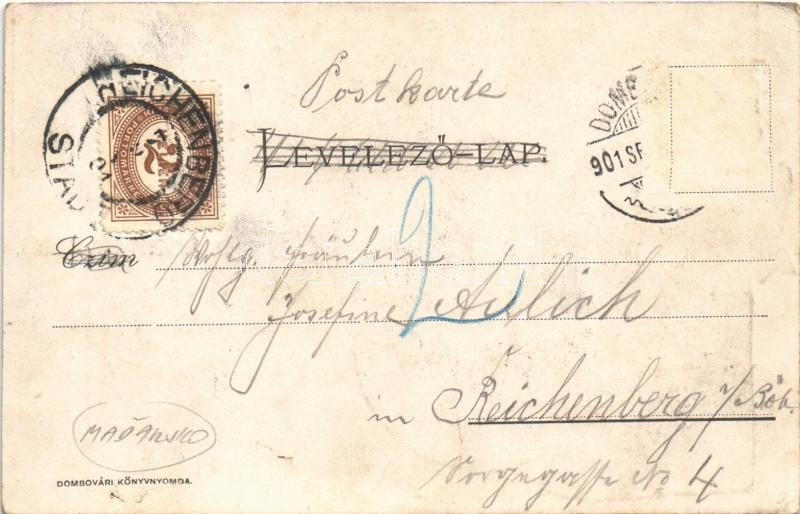 Postkarte
LEVELEZŐ-LAP.
REICHENBERG
STADT
2
DOMB
901 SE
2
Czím Wohlg. Fräulein
Josefine Aulich
in Reichenberg i/Böh.
Sorgegasse No 4
MAĎARSKO
DOMBOVÁRI KÖNYVNYOMDA.